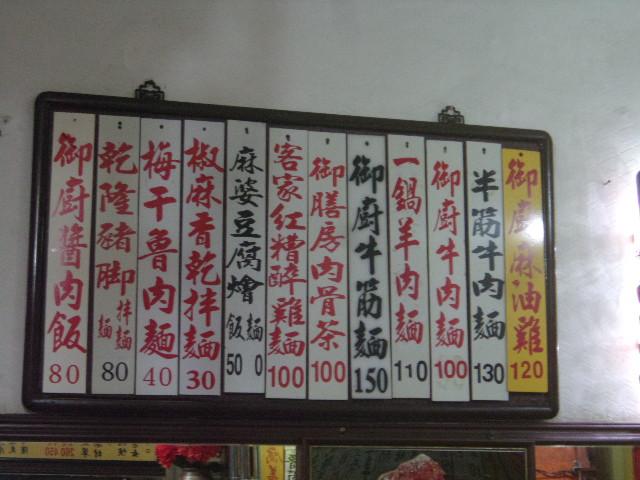 御廚麻油雞 120
半筋牛肉麵 130
御廚牛肉麵 100
一鍋羊肉麵 110
御廚牛筋麵 150
御膳房肉骨茶 100
客家紅糟醉雞麵 100
麻婆豆腐燴飯麵 50
椒麻香乾拌麵 30
梅干魯肉麵 40
乾隆豬脚麵拌麵 80
御廚醬肉飯 80